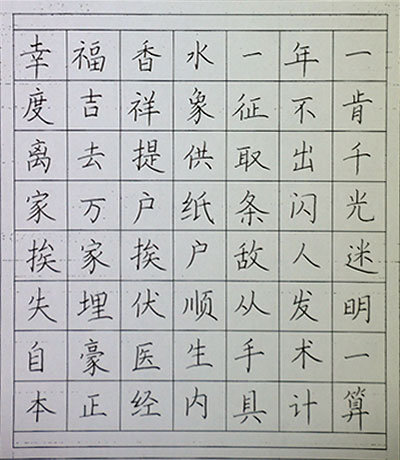 幸福香水一年一
度吉祥象征不肯
离去提供取出千
家万户纸条闪光
挨家挨户敌人迷
失埋伏顺从发明
自豪医生手术一
本正经内具计算